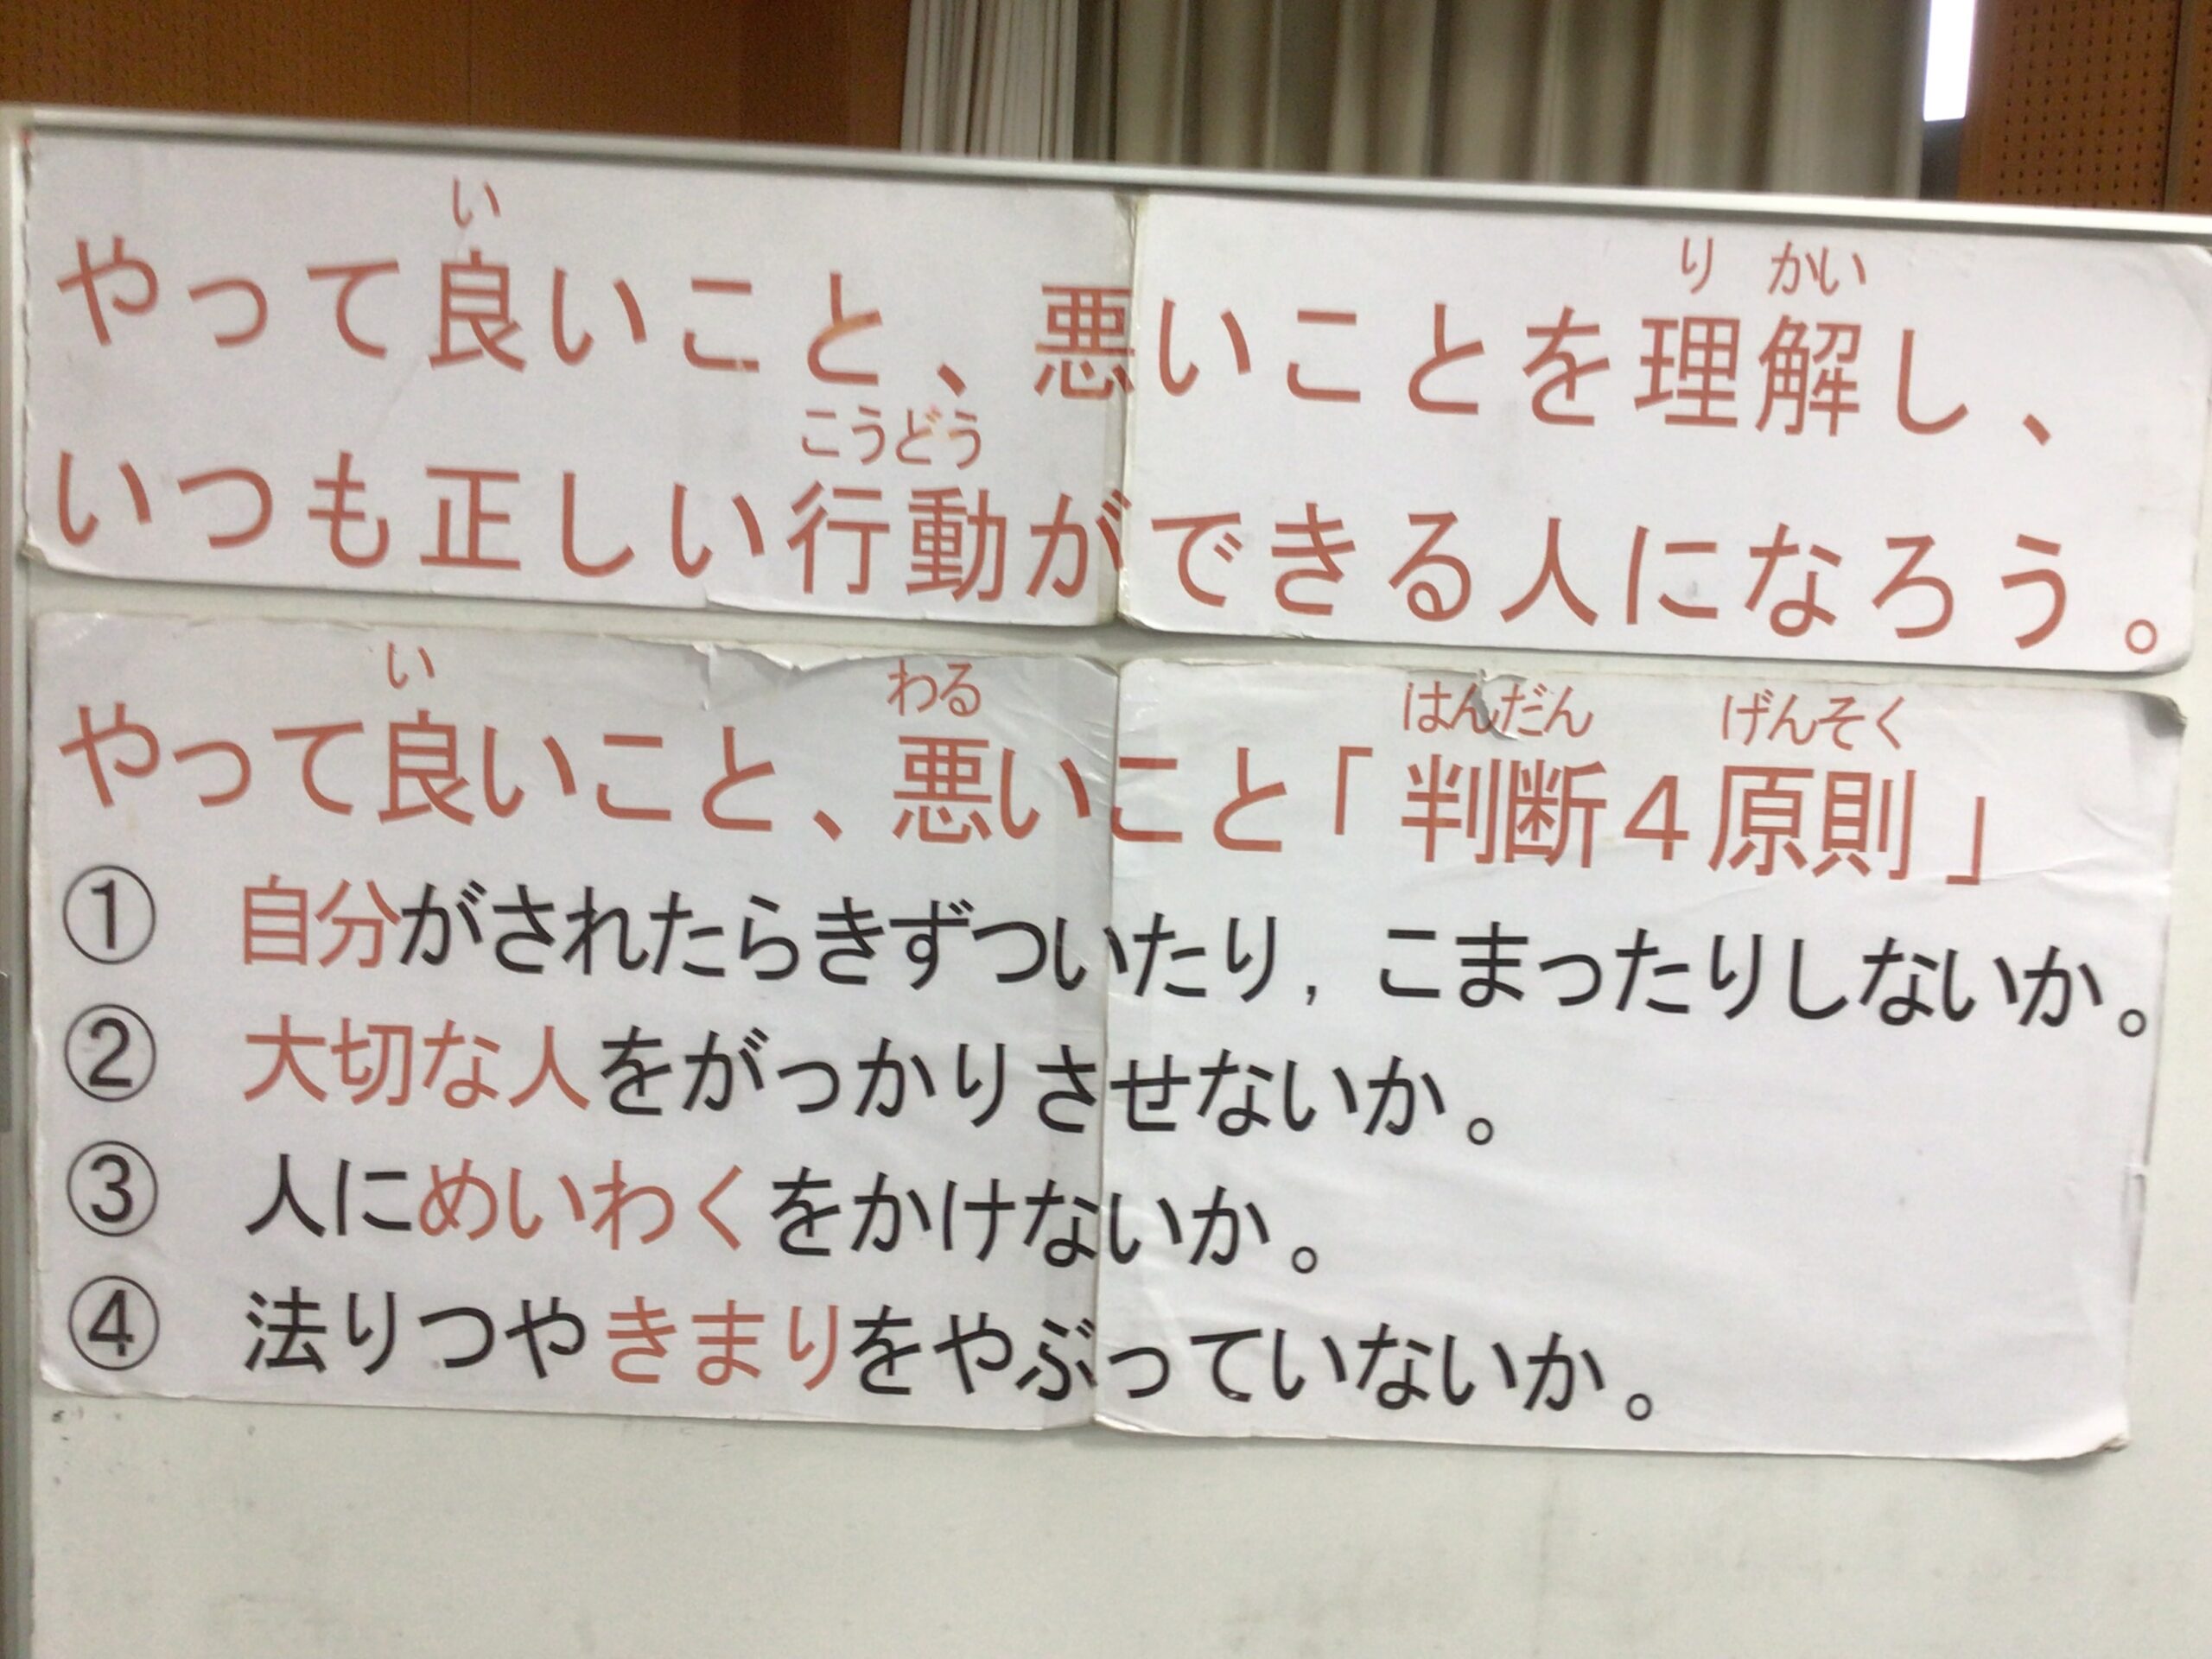 い
りかい
やって良いこと、悪いことを理解し、
こうどう
いつも正しい行動ができる人になろう。
い わる はんだん げんそく
やって良いこと、悪いこと「判断4原則」
① 自分がされたらきずついたり，こまったりしないか。
② 大切な人をがっかりさせないか。
③ 人にめいわくをかけないか。
④ 法りつやきまりをやぶっていないか。